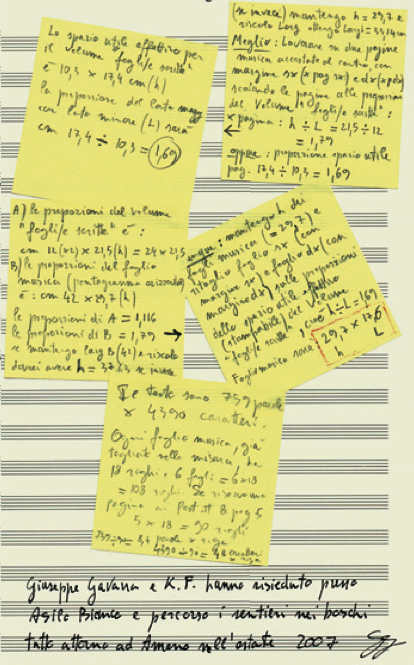 Lo spazio utile effettivo per
il volume "foglie scritte"
è 10,3 x 17,4 cm (h)
la proporzione del lato magg
con lato minore (L) sarà
cm 17,4 ÷ 10,3 = 1,69
(se invece) mantengo h = 29,7 e
ricalcolo
Meglio: lavorare su due pagine
musica accostate al centro, con
margine sx (x pag sx) e dx (x pag dx)
scalando le pagine alle proporzioni
del Volume "foglie scritte":
x pagina: h ÷ L = 21,5 ÷ 12
= 1,79
oppure: proporzione spazio utile
pag. 17,4 ÷ 10,3 = 1,69
A) le proporzioni del volume
"foglie scritte" è:
cm 12(x2) x 21,5(h) = 24 x 21,5
B) le proporzioni del foglio
musica (pentagramma orizzontale)
è: cm 42 x 29,7 (h)
le proporzioni di A = 1,116
le proporzioni di B = 1,79
se mantengo larg B (42) e ricalcolo
dovrei avere h = 37,63 se invece
oppure: mantengo h del
foglio musica (= 29,7) e
ritaglio foglio sx (con
margine sx) e foglio dx (con
margine dx) sulle proporzioni
dello spazio utile effettivo
(stampabile) del volume
"foglie scritte", cioè h÷L = 1,69
Foglio musica sarà 29,7 x 17,6
h L
Le parole sono 759 parole
x 4390 caratteri.
Ogni foglio musica, già
tagliato nella misura, ha
18 righi. 6 fogli = 6x18
= 108 righi. Se riserviamo
pagina ai Post it 8 pag 5
5 x 18 = 90 righi
759÷90 = 8,4 parole x rigo
4390÷90 = 48 caratteri
Giuseppe Gavazza e K.F. hanno risieduto presso
Asilo Bianco e percorso i sentieri nei boschi
tutto attorno ad Ameno nell'estate 2007